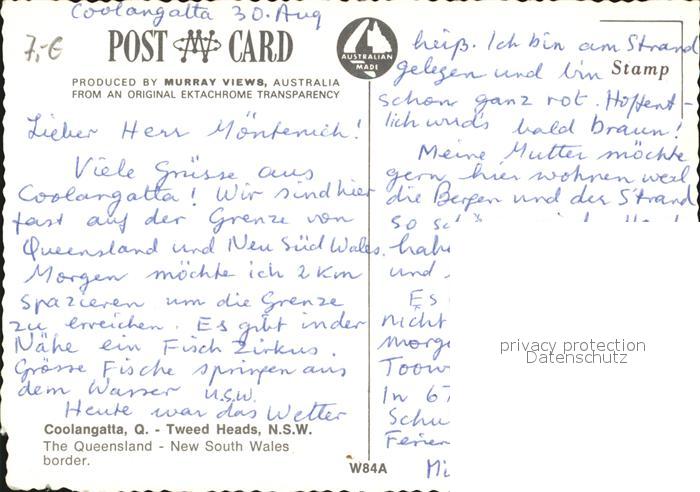 Coolangatta 30. Aug
7,-€
POST CARD
AUSTRALIAN MADE
PRODUCED BY MURRAY VIEWS, AUSTRALIA
FROM AN ORIGINAL EKTACHROME TRANSPARENCY
Lieber Herr Möntenich!
Viele Grüsse aus
Coolangatta! Wir sind hier
fast auf der Grenze von
Queensland und Neu Süd Wales.
Morgen möchte ich 2 km
spazieren um die Grenze
zu erreichen. Es gibt in der
Nähe ein Fisch Zirkus.
Grösse Fische springen aus
dem Wasser u.s.w.
Heute war das Wetter
Coolangatta, Q. - Tweed Heads, N.S.W.
The Queensland - New South Wales
border.
W84A
Stamp
heiß. Ich bin am Strand
gelegen und bin
schon ganz rot. Hoffent-
lich wird's bald braun!
Meine Mutter möchte
gern hier wohnen weil
die Bergen und der Strand
so
habe
und
Es
nicht
morge
Toow
In 6
Schu
Ferien
Mi
privacy protection
Datenschutz